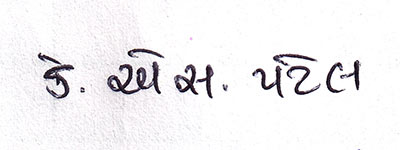 કે. એસ. પટેલ